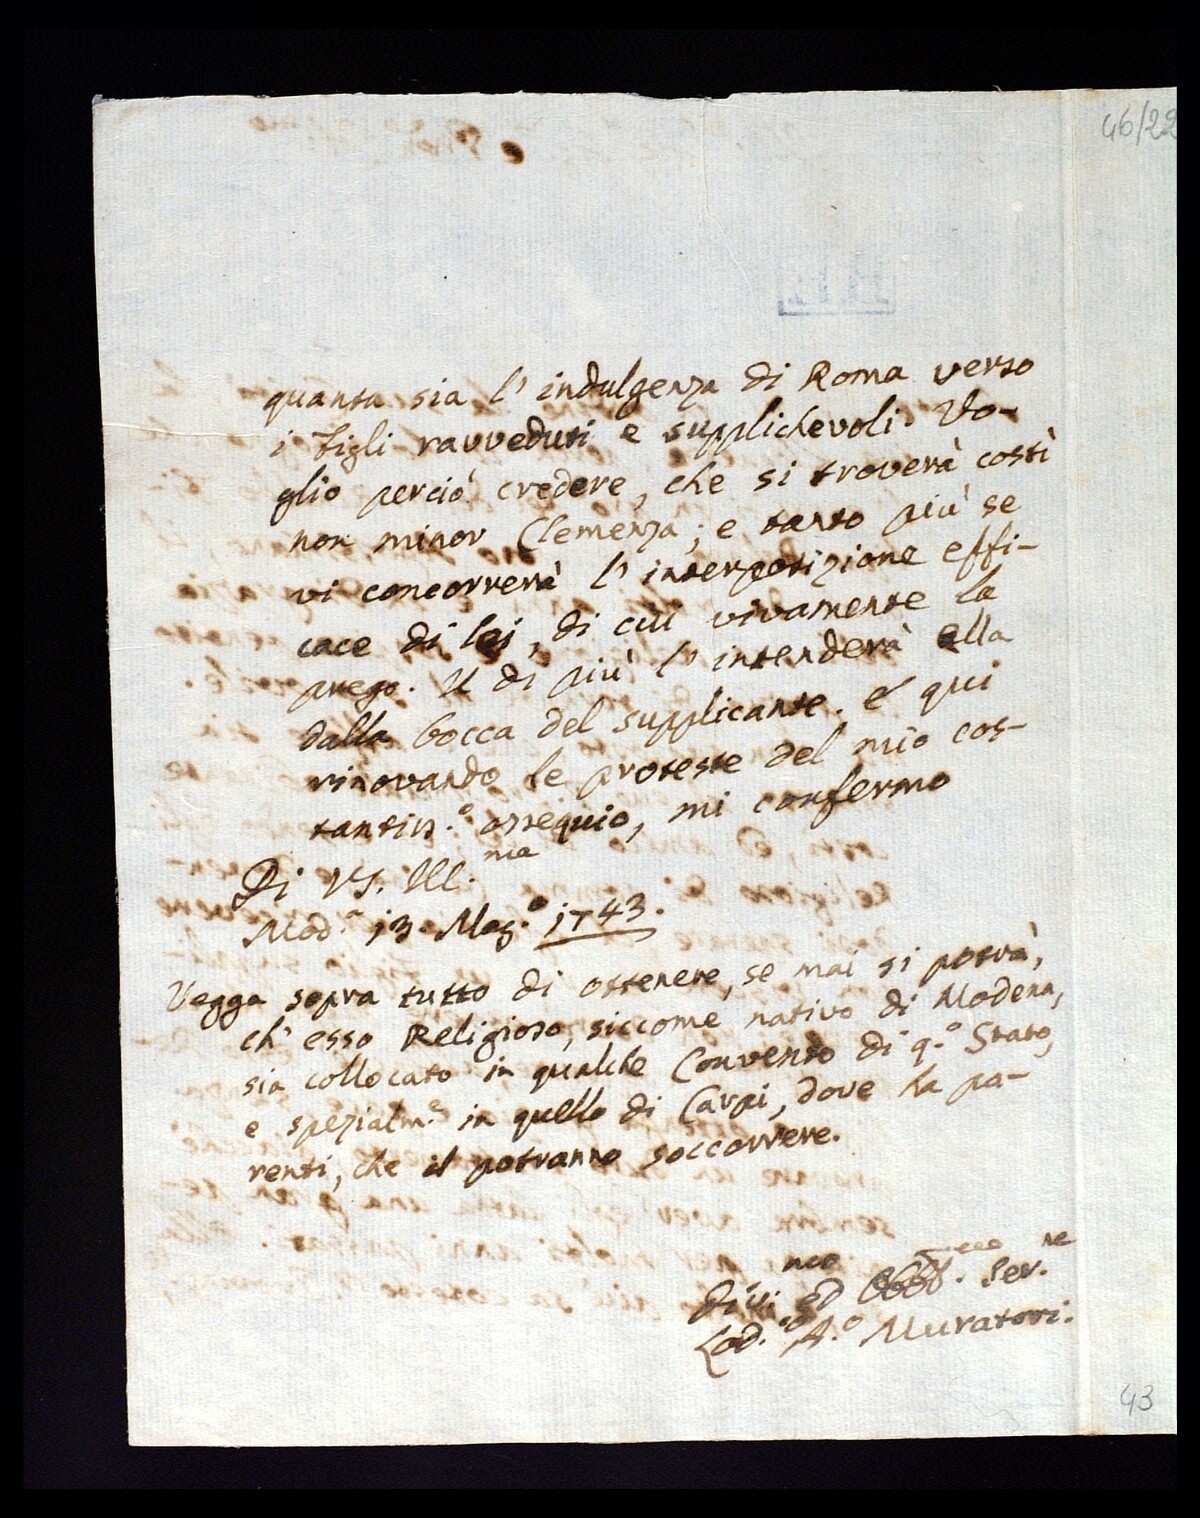 46/22
quanta sia l' indulgenza di Roma verso
i figli ravveduti e supplichevoli. Vo-
glio perciò credere, che si troverà costì
non minor Clemenza; e tanto più se
vi concorrerà l' interposizione effi-
cace di lei, di cui vivamente la
prego. Il di più l' intenderà ella
dalla bocca del supplicante. e qui
rinovando le proteste del mio cos-
tantiss.º ossequio, mi confermo
Di VS. Ill.ma
Mod.ª 13. Mag.º 1743.
Vegga sopra tutto di ottenere, se mai si potrà,
ch' esso Religioso, siccome nativo di Modena,
sia collocato in qualche Convento di q.º Stato,
e spezialm.e in quello di Carpi, dove ha pa-
renti, che il potranno soccorrere.
ed Obbl. Ser.re
Lod.º A.º Muratori.
43